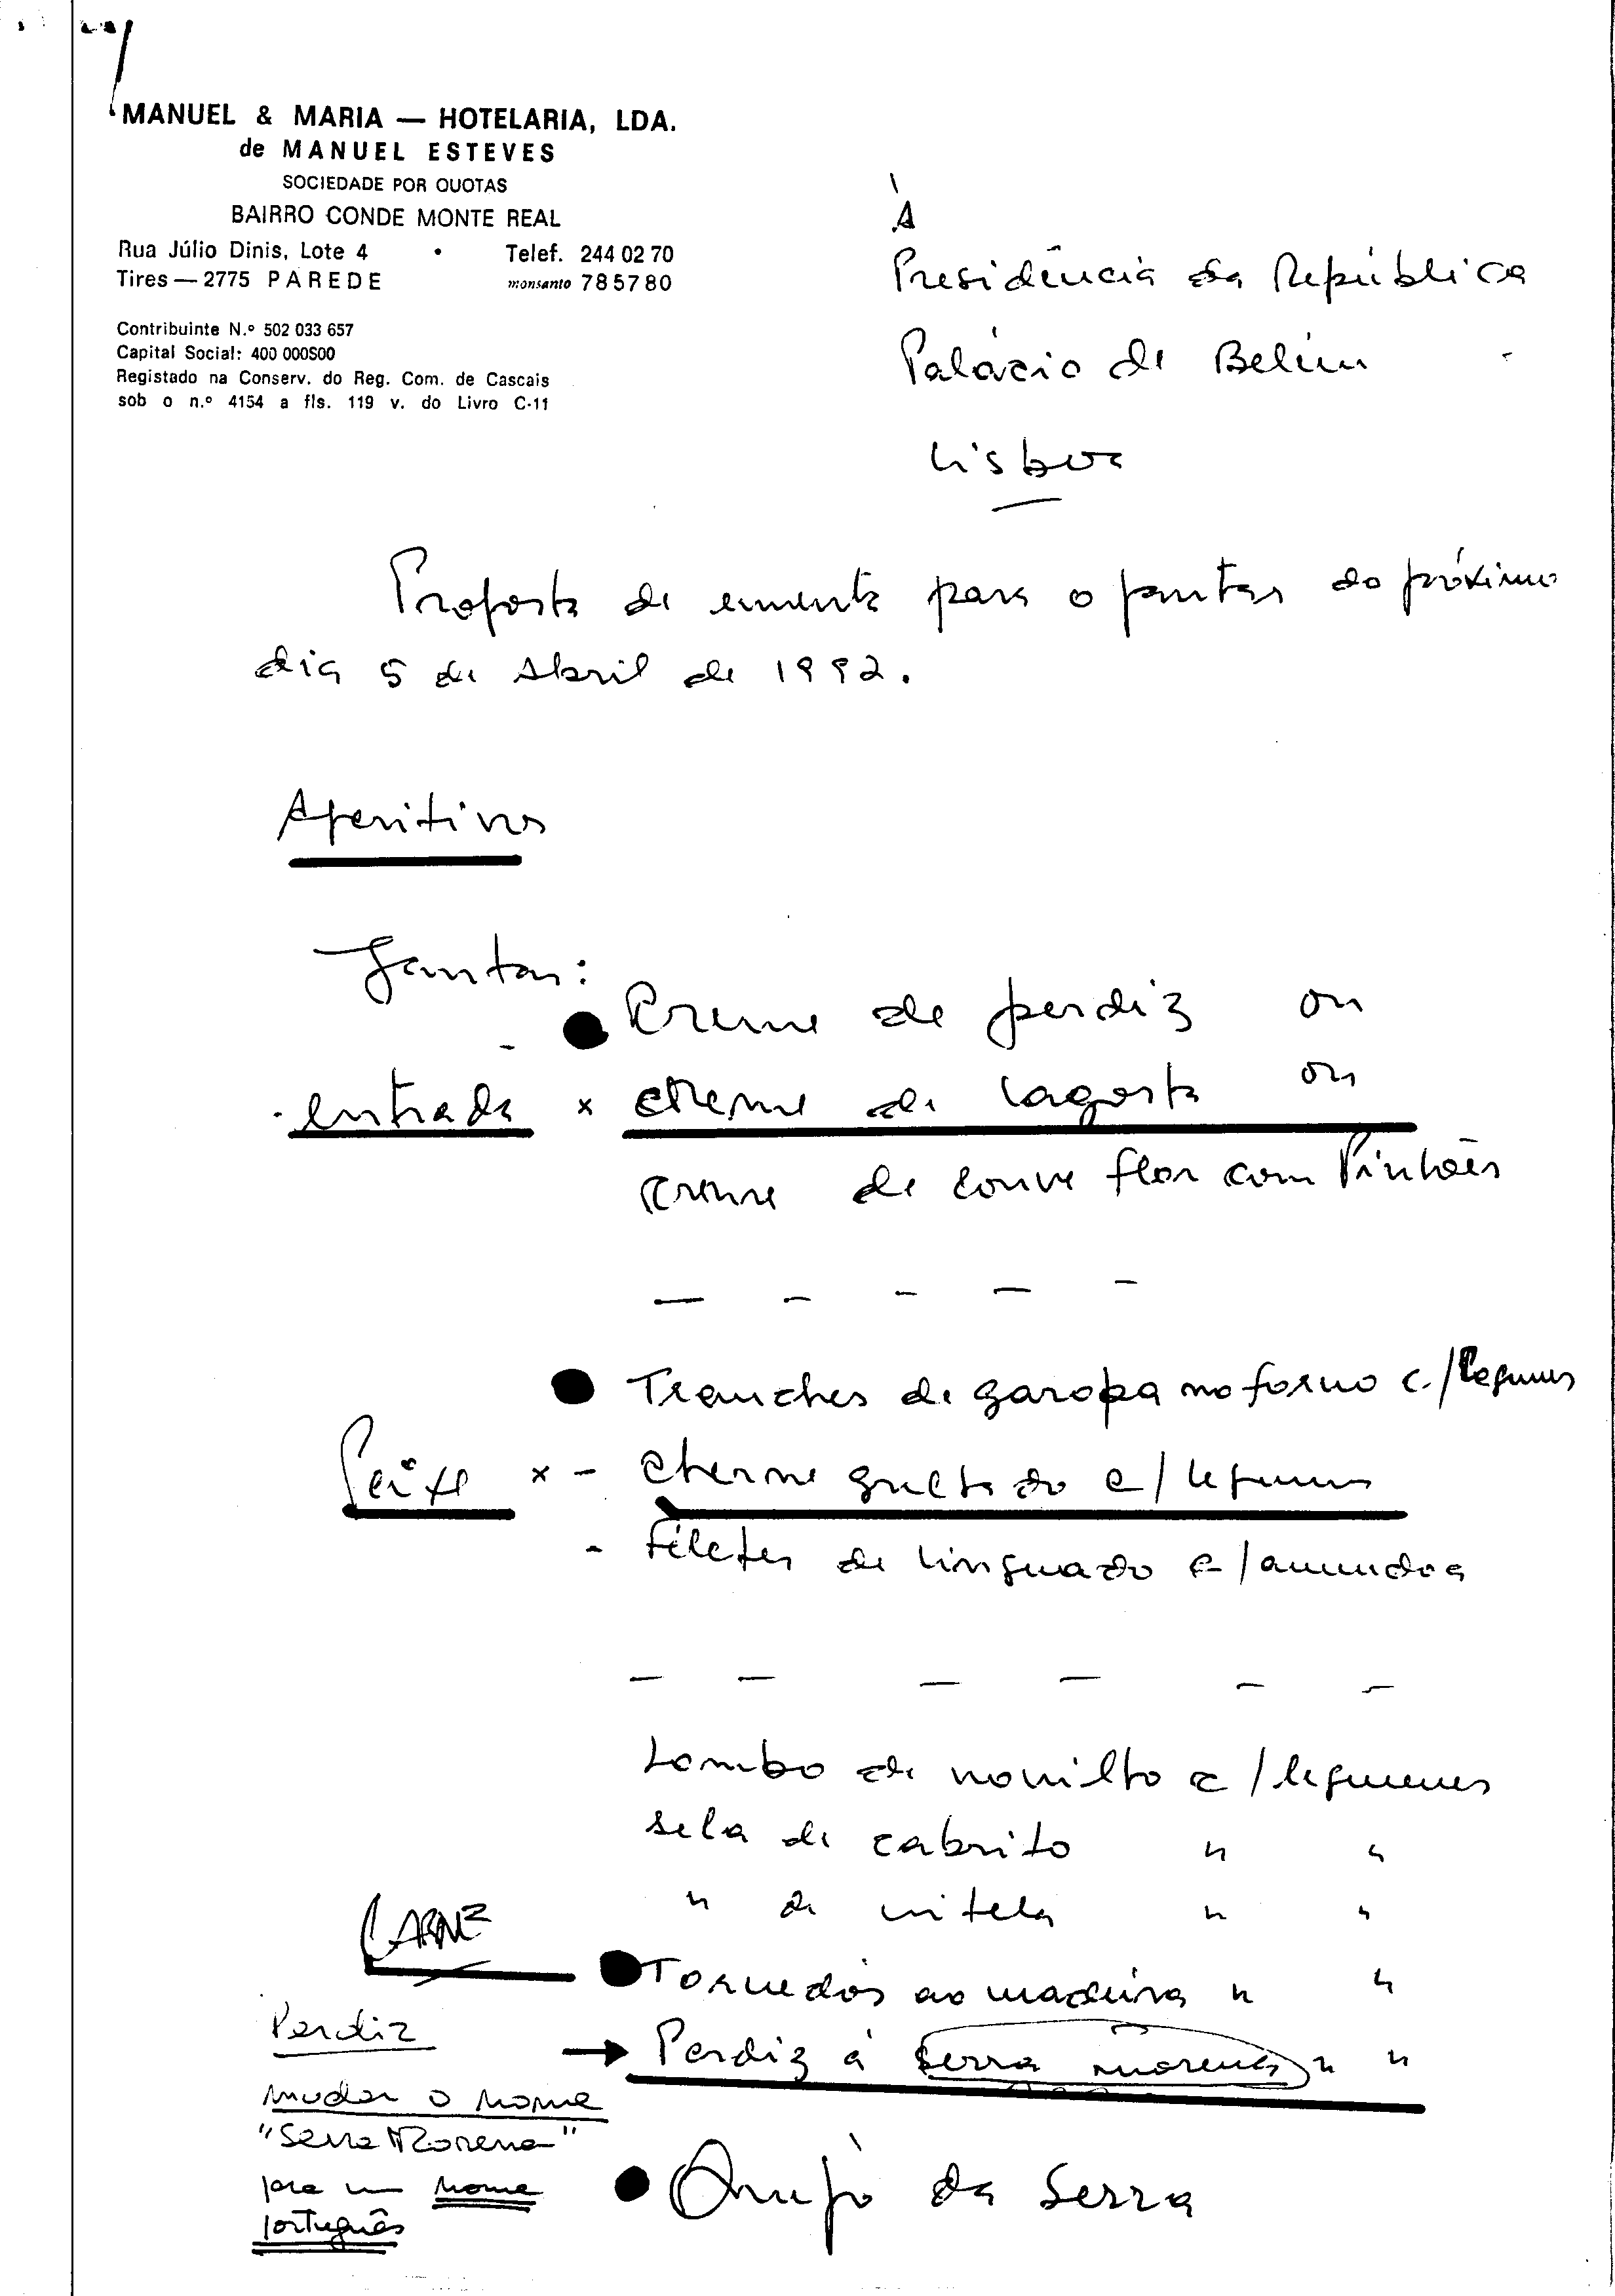 MANUEL & MARIA — HOTELARIA, LDA.
de MANUEL ESTEVES
SOCIEDADE POR QUOTAS
BAIRRO CONDE MONTE REAL
Rua Júlio Dinis, Lote 4 • Telef. 244 02 70
Tires — 2775 PAREDE monsanto 785780
Contribuinte N.º 502 033 657
Capital Social: 400 000S00
Registado na Conserv. do Reg. Com. de Cascais
sob o n.º 4154 a fls. 119 v. do Livro C-11
À
Presidência da República
Palácio de Belém
Lisboa
Proposta de ementa para o jantar do próximo
dia 5 de Abril de 1992.
Aperitivos
Jantar:
Creme de perdiz ou
entrada x creme de lagosta ou
creme de couve flor com Pinhões
— — — — —
Tranches de garopa no forno c/legumes
Peixe x - cherne grelhado c/legumes
- Filetes de linguado c/amendoa
— — — — — —
Lombo de novilho c/legumes
sela de cabrito " "
" de vitela " "
CARNE
Tornedós ao madeira " "
Perdiz
→ Perdiz á serra morena " "
mudar o nome
"Serra Morena"
pra um nome
português
da Serra